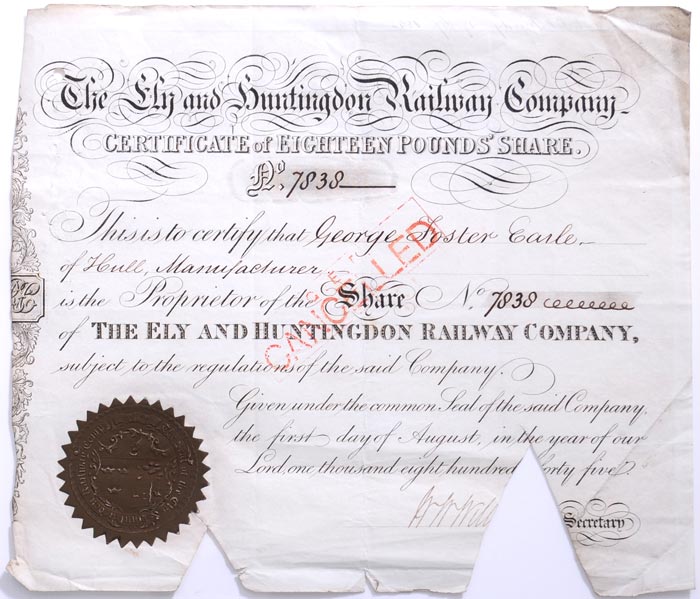 The Ely and Huntingdon Railway Company.
CERTIFICATE of EIGHTEEN POUNDS' SHARE.
No. 7838
This is to certify that George Foster Earle
of Hull, Manufacturer
is the Proprietor of the Share No. 7838
of THE ELY AND HUNTINGDON RAILWAY COMPANY,
subject to the regulations of the said Company.
CANCELLED
Given under the common Seal of the said Company,
the first day of August, in the year of our
Lord, one thousand eight hundred forty five
Secretary